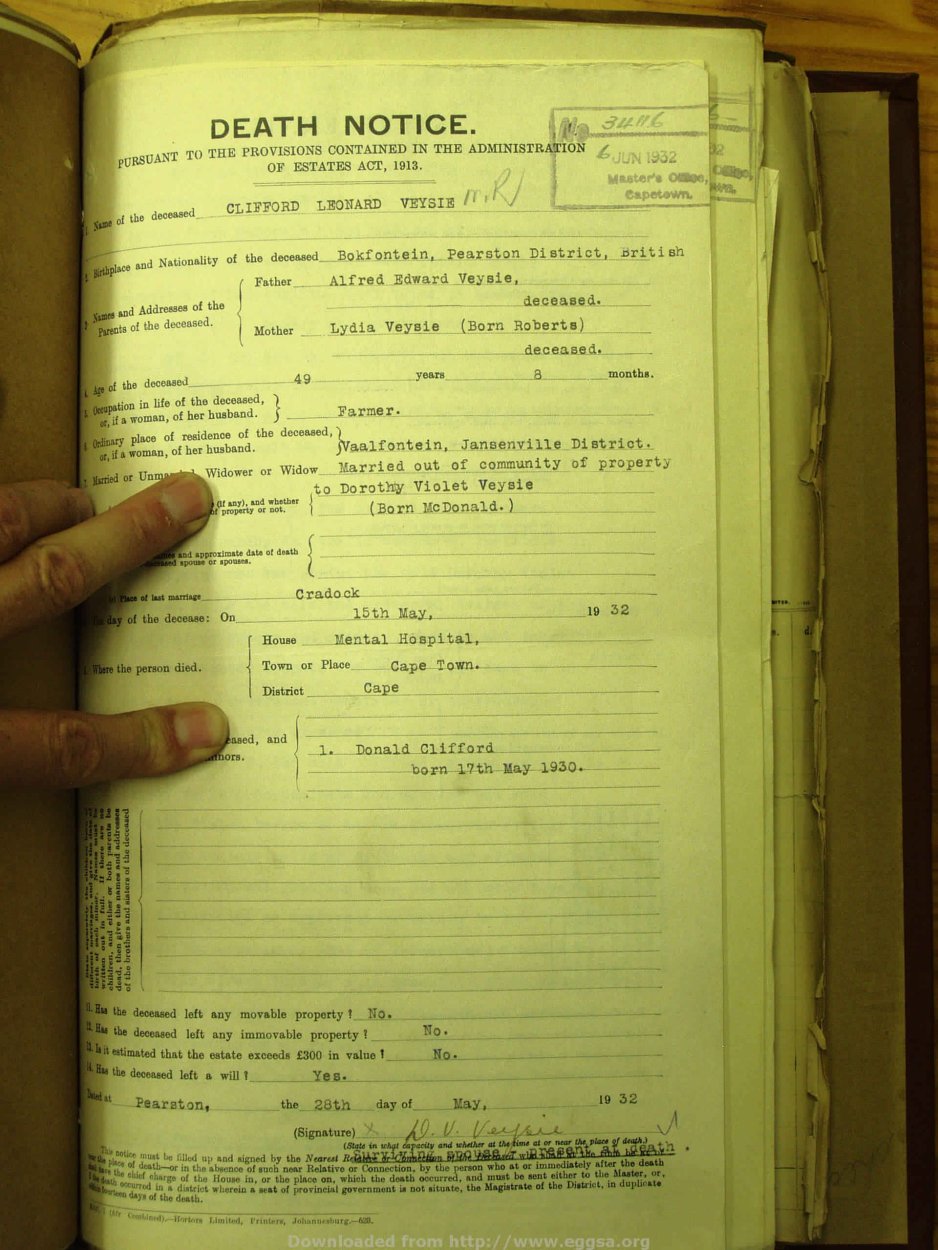 DEATH NOTICE.
PURSUANT TO THE PROVISIONS CONTAINED IN THE ADMINISTRATION
OF ESTATES ACT, 1913.
No 34116
6 JUN 1932
Master's Office,
Capetown.
1. Name of the deceased CLIFFORD LEONARD VEYSIE
2. Birthplace and Nationality of the deceased Bokfontein, Pearston District, British
3. Names and Addresses of the Parents of the deceased.
Father Alfred Edward Veysie,
deceased.
Mother Lydia Veysie (Born Roberts)
deceased.
4. Age of the deceased 49 years 8 months.
5. Occupation in life of the deceased, or, if a woman, of her husband. Farmer.
6. Ordinary place of residence of the deceased, or, if a woman, of her husband. Vaalfontein, Jansenville District.
7. Married or Widower or Widow Married out of community of property
to Dorothy Violet Veysie
(if any), and whether
of property or not. (Born McDonald.)
and approximate date of death
spouse or spouses.
Place of last marriage Cradock
day of the decease: On 15th May, 19 32
Where the person died.
House Mental Hospital,
Town or Place Cape Town.
District Cape
and
1. Donald Clifford
born 17th May 1930.
written out in full. If there are no
children, and either or both parents be
dead, then give the names and addresses
of the brothers and sisters of the deceased
11. Has the deceased left any movable property? No.
12. Has the deceased left any immovable property? No.
13. Is it estimated that the estate exceeds £300 in value? No.
14. Has the deceased left a will? Yes.
Dated at Pearston, the 28th day of May, 19 32
(Signature) x D. V. Veysie
(State in what capacity and whether at the time at or near the place of death.)
Surviving spouse present at death.
This notice must be filled up and signed by the Nearest Relative or Connection of the deceased
the place of death—or in the absence of such near Relative or Connection, by the person who at or immediately after the death
the chief charge of the House in, or the place on, which the death occurred, and must be sent either to the Master, or,
the death occurred in a district wherein a seat of provincial government is not situate, the Magistrate of the District, in duplicate
fourteen days of the death.
Combined).—Hortors Limited, Printers, Johannesburg.—628.
Downloaded from http://www.eggsa.org